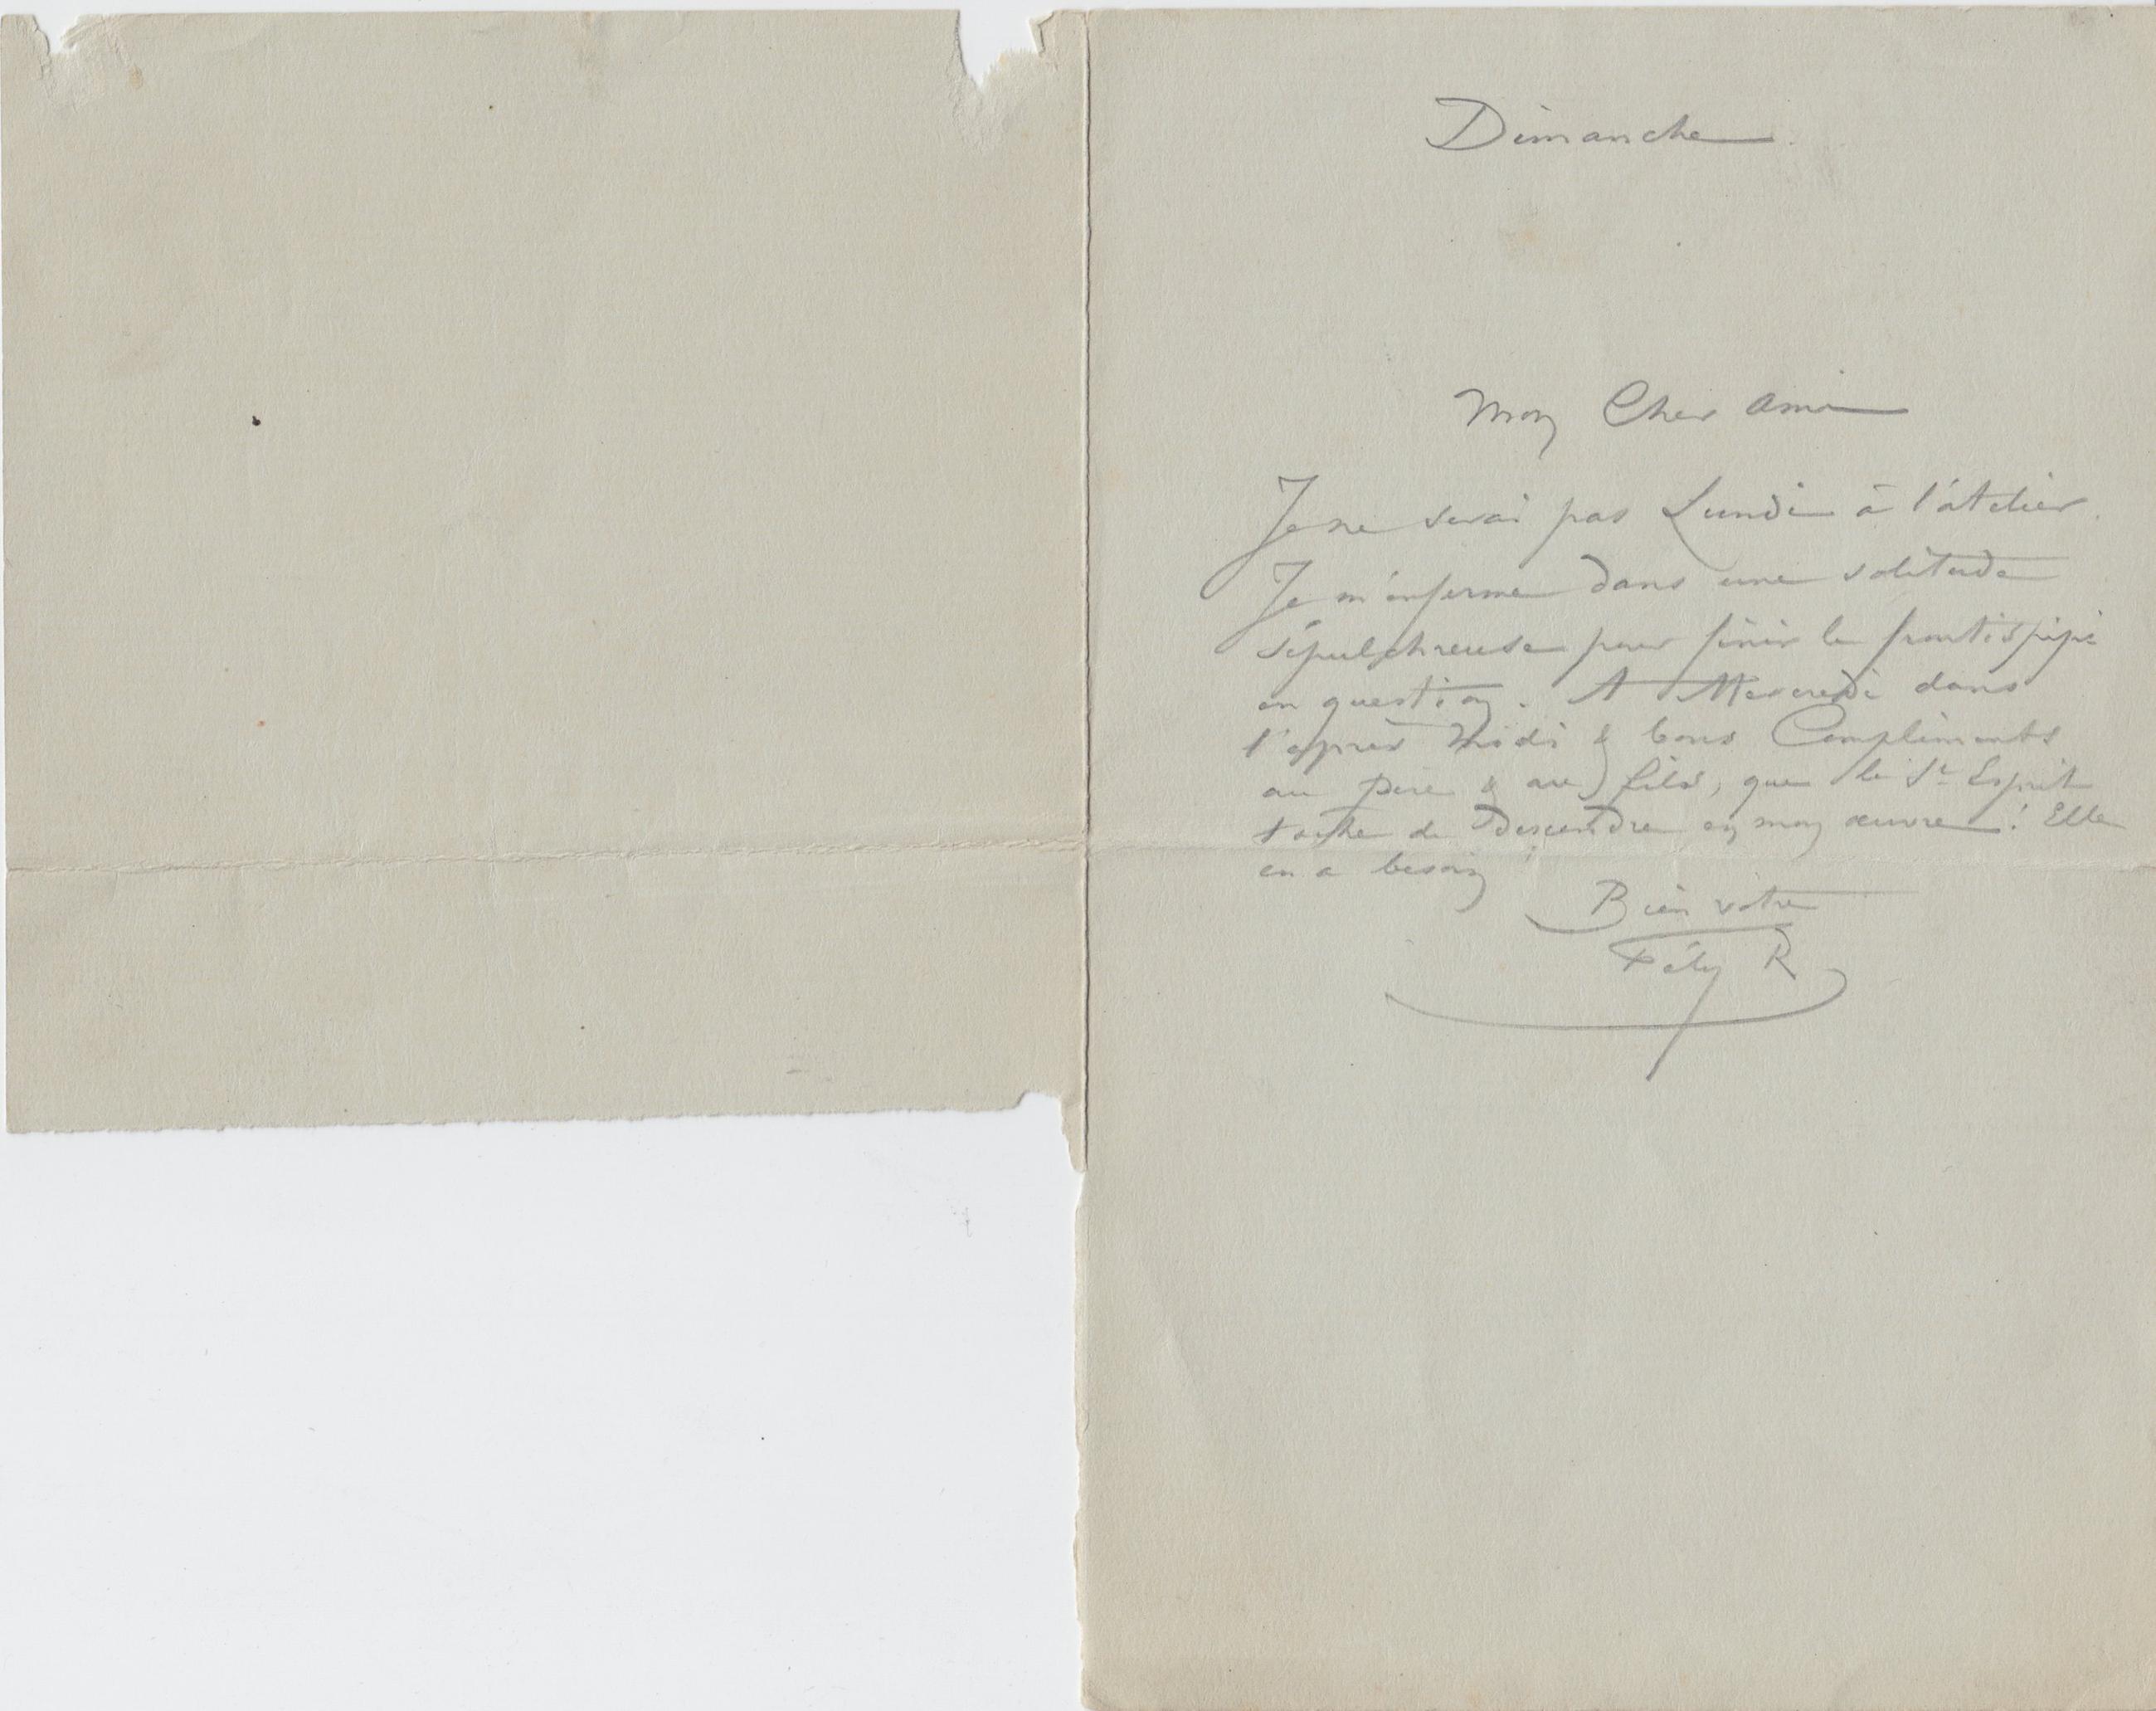 Dimanche
Mon Cher Ami
Je ne serai pas Lundi à l'atelier.
Je m'enferme dans une solitude
sépulchreuse pour finir le frontispipi
en question. A Mercredi dans
l'après Midi & bons Compliments
au Père & au fils, que le St Esprit
tache de descendre en mon œuvre ! Elle
en a besoin !
Bien votre
Fély R